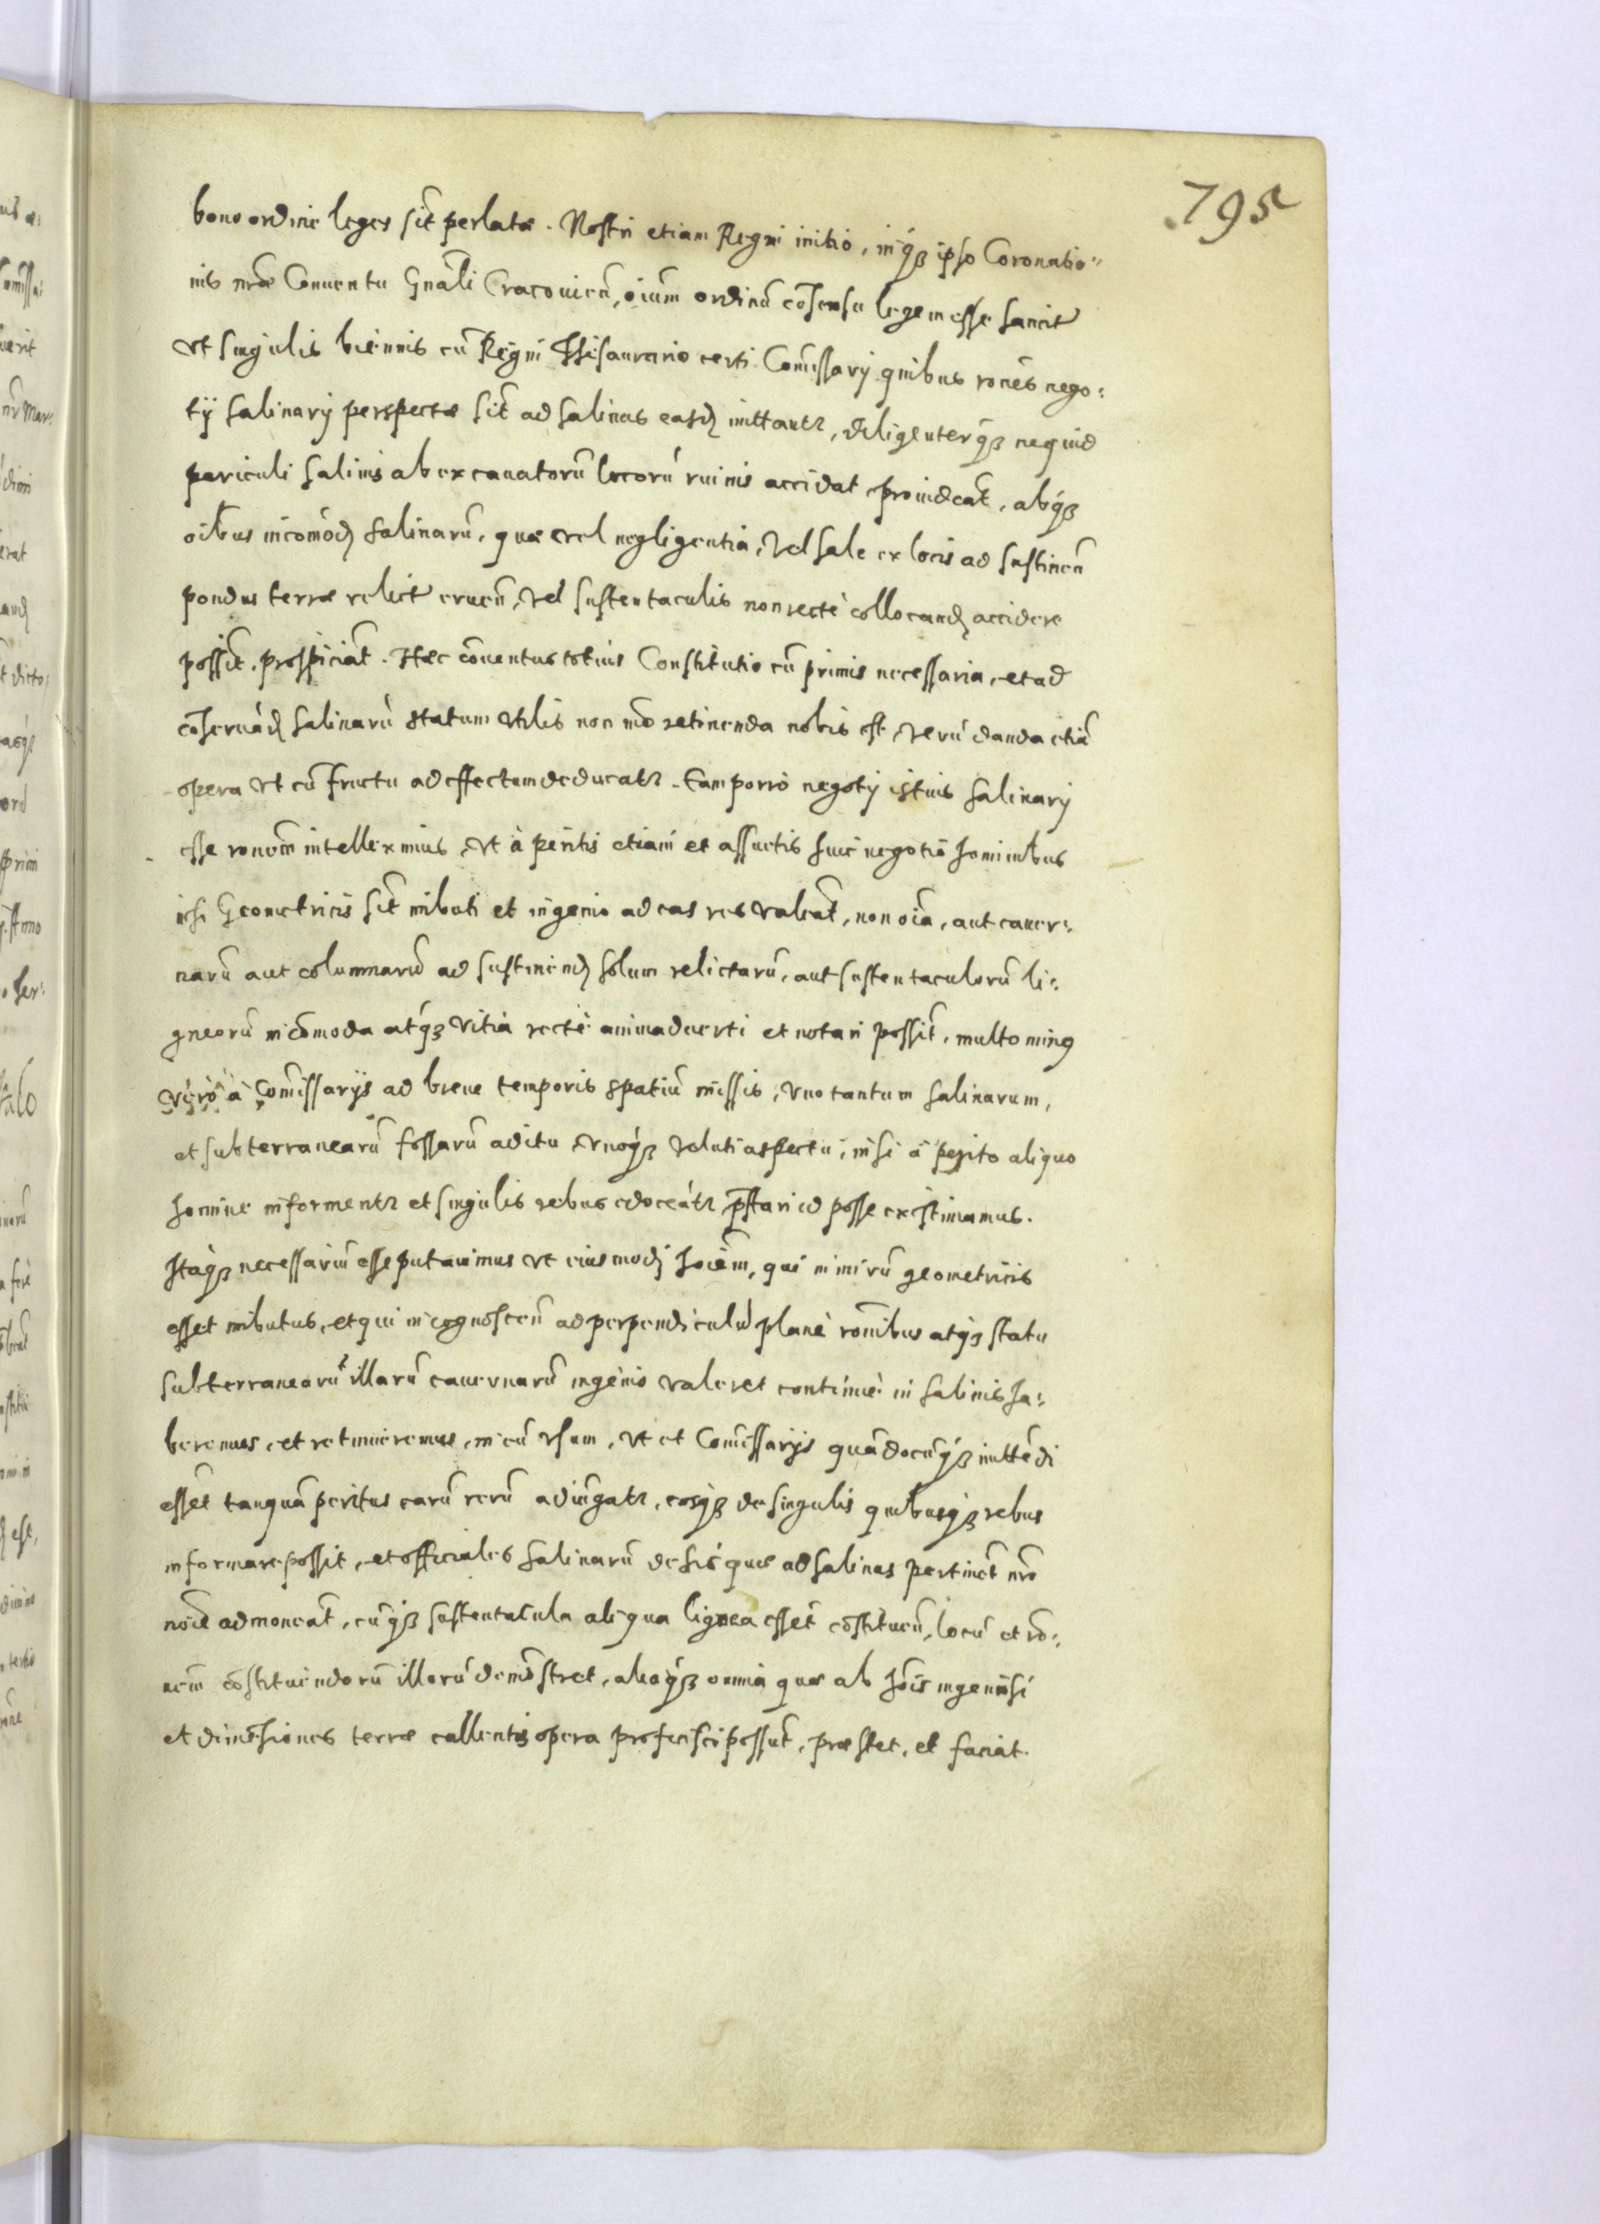 795
bono ordine leges sĩt perlatæ. Nostri etiam Regni initio, inq́ȝ ipso Coronatio=
nis nr̃æ Conuentu Gnãli Cracouieñ, oĩum ordinũ cõsensu legem esse sancit̃
vt singulis bienniis cũ Regni Thesaurario certi Com̃issarij quibus rones̃ nego:
tij salinarij perspectæ sĩt ad salinas easd̃ mittantr, diligenterq́ȝ nequid
periculi salinis ab excauatorũ locorũ ruinis accidat prouideat̃, abq́ȝ
oib̃us incom̃od̃ salinarũ, quæ vel negligentia, vel sale ex locis ad sustineñ
pondus terræ relict̃ erueñ, vel sustentaculis non rectè collocand̃ accidere
possĩt, prospiciãt. Hæc cõuentus totius Constitutio cũ primis necessaria, et ad
cõseruãd̃ salinarũ statum vtilis non mõ retinenda nobis est, verũ danda etiã
opera vt cũ fructu ad effectum deducatr. Eam porrò negotij istius salinarij
esse ronem̃ intelleximus, vt à peritis etiam et assuetis huic negotio hominibus
nisi Geometricis sĩt imbuti et ingenio ad eas res valeãt, non oĩa, aut cauer:
narũ aut columnarũ ad sustinend̃ solum relictarũ, aut sustentaculorũ li:
gneorũ incõmoda atq́ȝ vitia rectè animaduerti et notari possĩt, multo minꝰ
vero à Com̃issarijs ad breue temporis spatiũ missis, vno tantum salinarum,
et subterranearũ fossarũ aditu, vnoq́ȝ veluti aspectu, nisi à perito aliquo
homine informentr et singulis rebus edoceãtr, p̃stari id posse existimamus.
Itaq́ȝ necessariũ esse putauimus vt eiusmodi hoĩem, qui nimirũ geometricis
esset imbutus, et qui in cognosceñ ad perpendiculũ planè ronĩbus atq́ȝ statu
subterranearũ illarũ cauernarũ ingenio valeret continuè in salinis ha:
beremus, et retineremus, in eũ vsum, vt et Com̃issarijs quãdocũq́ȝ mittẽdi
essẽt tanquã peritus earũ rerũ adiũgatr, eosq́ȝ de singulis quibusq́ȝ rebus
informare possit, et officiales salinarũ de his quæ ad salinas pertinẽt nrõ
noĩe admoneat̃, cũq́ȝ sustentacula aliqua lignea essẽt cõstitueñ, locũ et rõ:
nem cõstituendorũ illorũ demõstret, aliaq́ȝ omnia quæ ab hoĩs ingeniosi
et dimẽsiones terræ callentis opera proficisci possũt, præstet, et faciat.